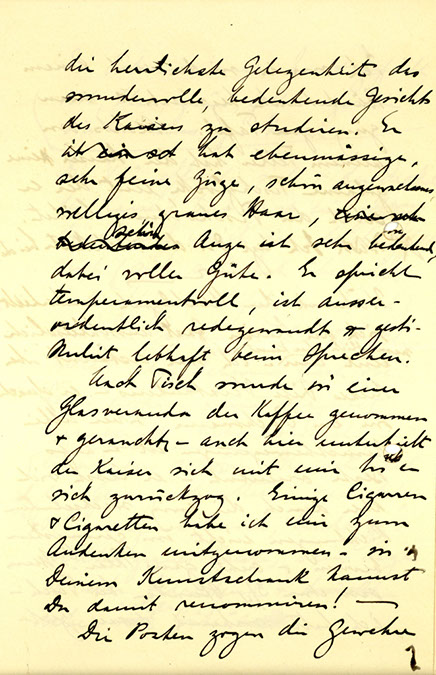 die herrlichste Gelegenheit das
wundervolle, bedeutende Gesicht
des Kaisers zu studieren. Er
ist ein so hat ebenmässige,
sehr feine Züge, schön angenehmes,
welliges, graues Haar,
sein Auge ist sehr bedeutend,
dabei voller Güte. Er spricht
temperamentvoll, ist ausser-
ordentlich redegewandt & gesti-
kuliert lebhaft beim Sprechen.
Nach Tisch wurde in einer
Glasveranda der Kaffee genommen
& geraucht, - auch hier unterhielt
der Kaiser sich mit mir bis er
sich zurückzog. Einige Cigarren
& Cigaretten habe ich mir zum
Andenken mitgenommen - in
Deinem Kunstschrank kannst
Du damit renommieren! —
Die Posten zogen die Gewehre